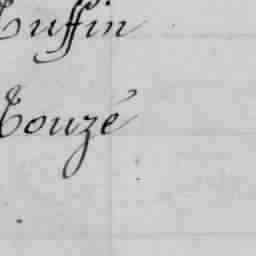 Ruffin
Rouzé